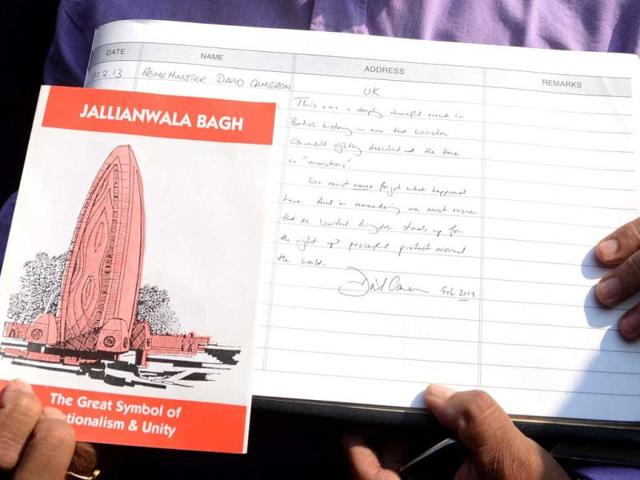 DATE NAME ADDRESS REMARKS
20.2.13 PRIME MINISTER DAVID CAMERON UK
This was a deeply shameful event in
British history – one that Winston
Churchill rightly described at the time
as "monstrous".
We must never forget what happened
here. And in remembering we must ensure
that the United Kingdom stands up for
the right of peaceful protest around
the world.
David Cameron Feb. 2013
JALLIANWALA BAGH
The Great Symbol of
tionalism & Unity